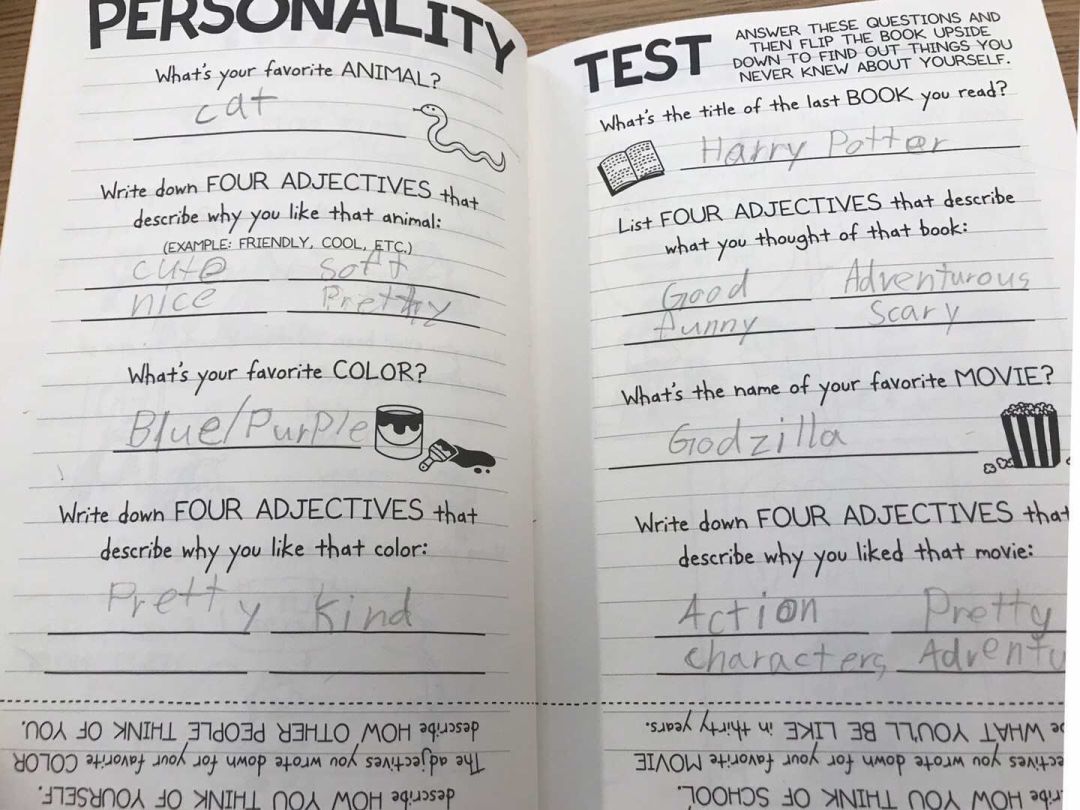 PERSONALITY
What's your favorite ANIMAL?
cat
Write down FOUR ADJECTIVES that
describe why you like that animal:
(EXAMPLE: FRIENDLY, COOL, ETC.)
cute soft
nice Pretty
What's your favorite COLOR?
Blue/Purple
Write down FOUR ADJECTIVES that
describe why you like that color:
Pretty kind
describe HOW YOU THINK OF YOURSELF.
The adjectives you wrote down for your favorite COLOR
describe HOW OTHER PEOPLE THINK OF YOU.
TEST
ANSWER THESE QUESTIONS AND
THEN FLIP THE BOOK UPSIDE
DOWN TO FIND OUT THINGS YOU
NEVER KNEW ABOUT YOURSELF.
What's the title of the last BOOK you read?
Harry Potter
List FOUR ADJECTIVES that describe
what you thought of that book:
Good Adventurous
funny Scary
What's the name of your favorite MOVIE?
Godzilla
Write down FOUR ADJECTIVES that
describe why you liked that movie:
Action Pretty
characters Adventu
ribe HOW YOU THINK OF SCHOOL.
ectives you wrote down for your favorite MOVIE
be WHAT YOU'LL BE LIKE in thirty years.